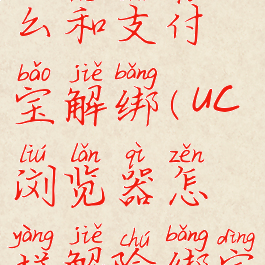 么和支付
bǎo jiě bǎng
宝解绑(UC
liú lǎn qì zěn
浏览器怎
yàng jiě chú bǎng dìng
样解除绑定